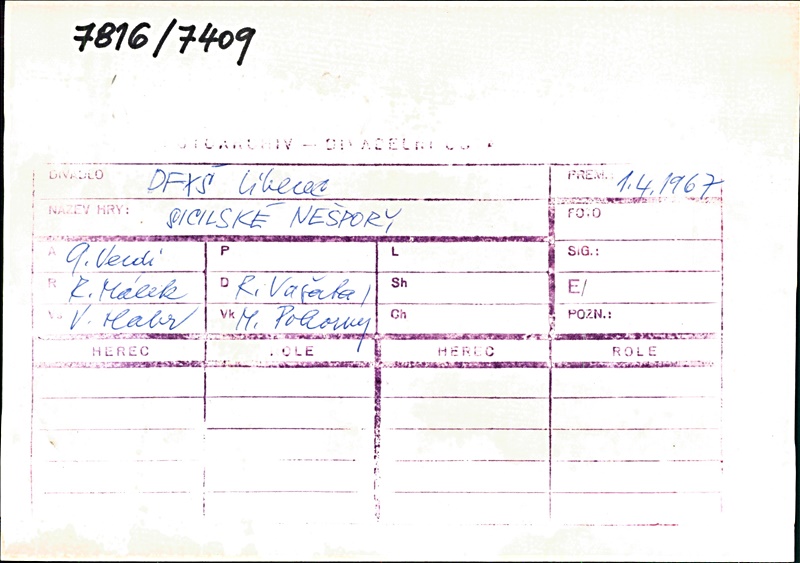 7816/7409
FOTOARCHIV — DIVADELNÍ ÚSTAV
DIVADLO DFXŠ Liberec PREM.: 1.4.1967
NÁZEV HRY: SICILSKÉ NEŠPORY FOTO
A G. Verdi P L SIG.:
R R. Málek D R. Vašata Sh E/
V. Vk M. Pokorný Ch POZN.:
HEREC ROLE HEREC ROLE